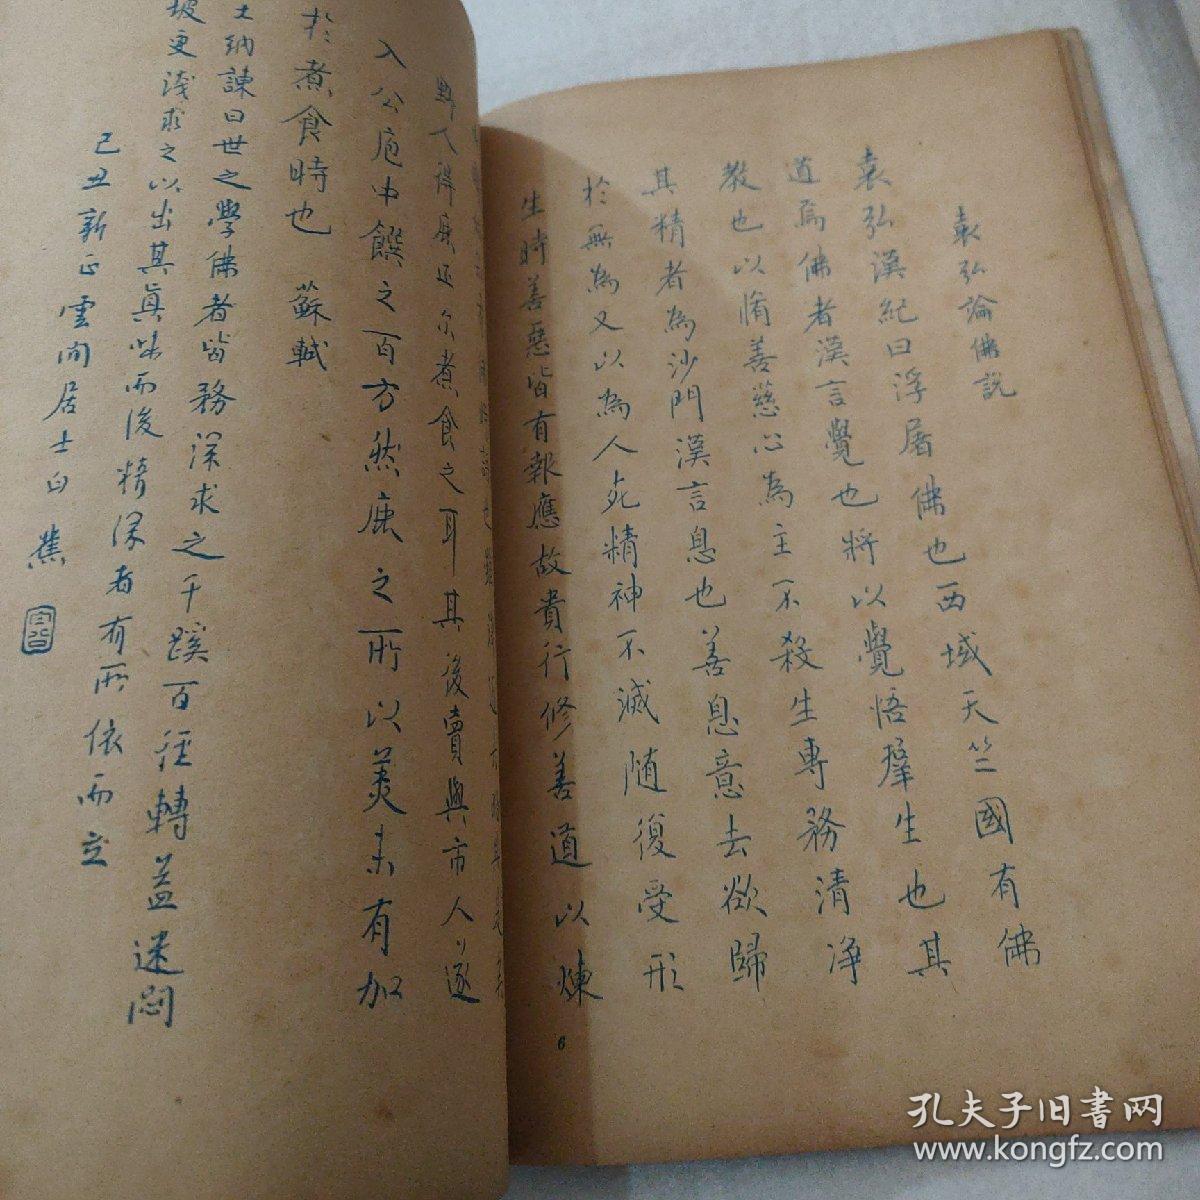 袁弘論佛說
袁弘漢紀曰浮屠佛也西域天竺國有佛
道焉佛者漢言覺也將以覺悟羣生也其
教也以脩善慈心為主不殺生專務清淨
其精者為沙門漢言息也善息意去欲歸
於無為又以為人死精神不滅随復受形
生時善惡皆有報應故貴行修善道以煉
6
野人得鹿正尔煮食之耳其後賣與市人遂
入公庖中饌之百方然鹿之所以美未有加
於煮食時也 蘇軾
土納諫曰世之學佛者皆務深求之千蹊百徑轉益迷悶
坡更淺求之以出其真味而後精深者有所依而立
己丑新正雲間居士白蕉
孔夫子旧書网
www.kongfz.com